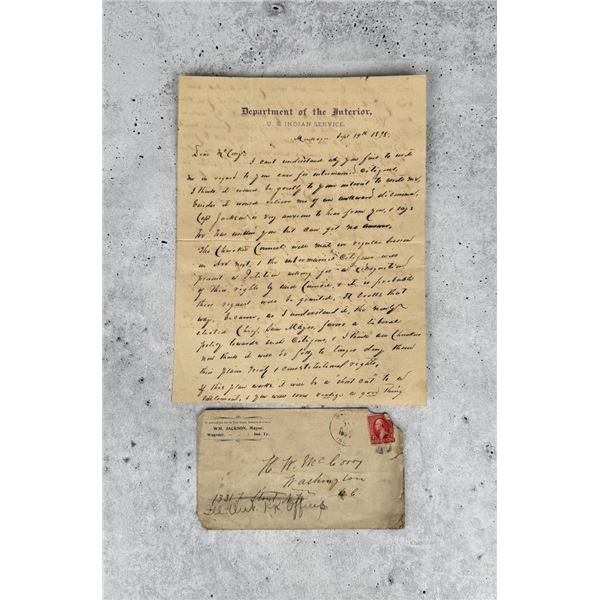 Department of the Interior,
U. S. INDIAN SERVICE.
Sept 19th 1895.
Dear
I can't understand why you fail to write
me in regard to your care for intermarried Citizens,
I think it would be greatly to your interest to write me,
besides it would relieve me of an awkward dilemma,
Capt Jackson is very anxious to hear from you, & says
he has written you but can get no answer.
The Cherokee Council will meet in regular session
in Nov next, & the intermarried Citizens will
present a Petition asking for a
of their rights by said Council, & it is probable
their request will be granted. It looks that
way, because, as I understand it, the newly
elected Chief, Sam Mayes, favors a liberal
policy towards said Citizens, & I think all Cherokees
now think it will be folly to longer deny them
their plain treaty & constitutional rights,
If this plan works it will be a "short cut" to a
settlement, & you will soon realize a good thing
WM. JACKSON, Mayor,
Wagoner, - - - - Ind. Ty.
H. W. McCorry
Washington
D.C.
1331
R.R. Office